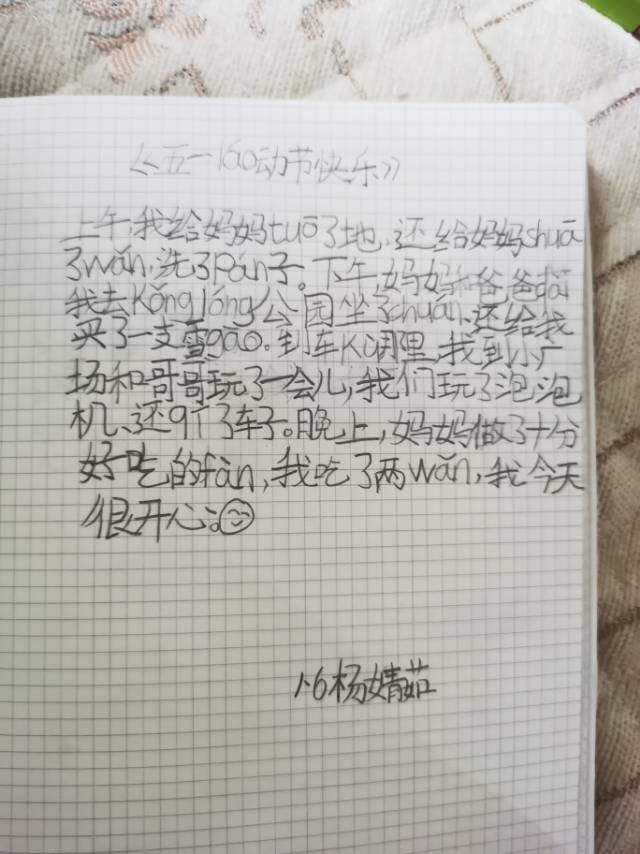 《五一láo动节快乐》
上午,我给妈妈tuō了地,还给妈妈shuā
了wǎn,洗了Pán子。下午,妈妈和爸爸dài
我去Kǒng lóng公园坐了chuán,还给我
买了一支雪gāo。到车K
里,我到小广
场和哥哥玩了一会儿,我们玩了泡泡
机、还qí了车子。晚上,妈妈做了十分
好吃的fàn,我吃了两wǎn,我今天
很开心。
1.6杨婧茹